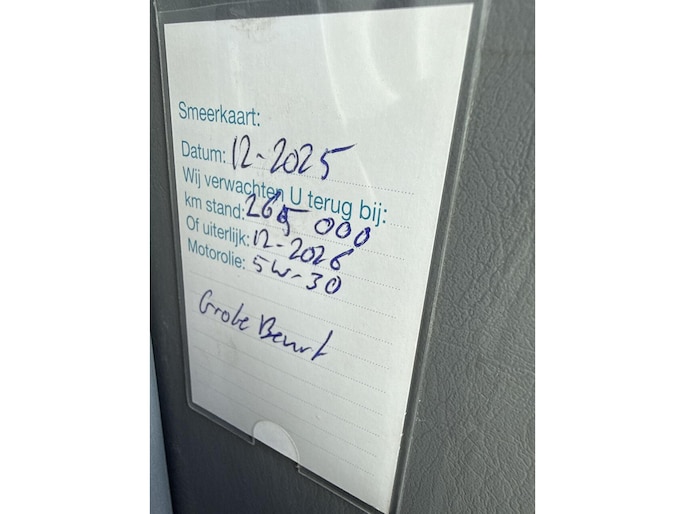 Smeerkaart:
Datum: 12-2025
Wij verwachten U terug bij:
km stand: 265 000
Of uiterlijk: 12-2026
Motorolie: 5W-30
Grote Beurt